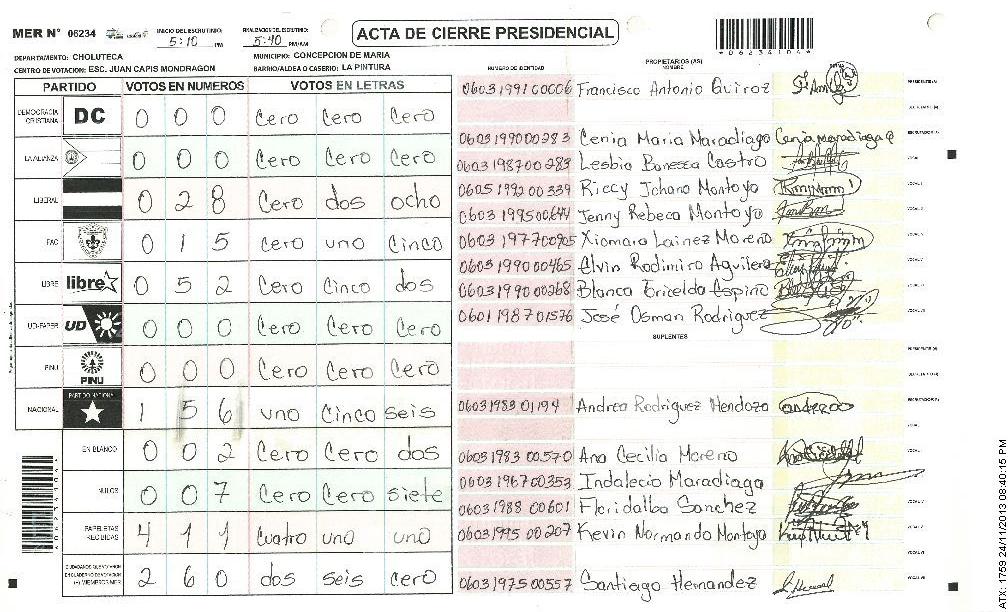 MER N° 06234
INICIO DEL ESCRUTINIO: 5:10 PM
FINALIZACION DEL ESCRUTINIO: 5:40 PM/AM
ACTA DE CIERRE PRESIDENCIAL
06234104
DEPARTAMENTO: CHOLUTECA
MUNICIPIO: CONCEPCION DE MARIA
CENTRO DE VOTACION: ESC. JUAN CAPIS MONDRAGON
BARRIO/ALDEA O CASERIO: LA PINTURA
PARTIDO VOTOS EN NUMEROS VOTOS EN LETRAS
DEMOCRACIA CRISTIANA DC 0 0 0 Cero Cero Cero
LA ALIANZA 0 0 0 Cero Cero Cero
LIBERAL 0 2 8 Cero dos ocho
FAC 0 1 5 Cero uno Cinco
LIBRE libre 0 5 2 Cero Cinco dos
UD-FAPER UD 0 0 0 Cero Cero Cero
PINU PINU 0 0 0 Cero Cero Cero
NACIONAL PARTIDO NACIONAL 1 5 6 uno Cinco seis
EN BLANCO 0 0 2 Cero Cero dos
NULOS 0 0 7 Cero Cero siete
PAPELETAS RECIBIDAS 4 1 1 Cuatro uno uno
2 6 0 dos seis Cero
NUMERO DE IDENTIDAD
PROPIETARIOS (AS)
NOMBRE
FIRMA
0603199100006 Francisco Antonio Quiroz
0603199000283 Cenia Maria Maradiaga Cenia maradiaga
0603198700289 Lesbia Banessa Castro
0605199200339 Riccy Johana Montoya
0603199500644 Jenny Rebeca Montoya
0603197700905 Xiomara Lainez Moreno
0603199000465 Elvin Rodimiro Aguilera
0603199000268 Blanca Ericelda Espino
0601198701576 José Osman Rodriguez
SUPLENTES
0603198301194 Andrea Rodriguez Mendoza
0603198300570 Ana Cecilia Moreno
0603196700353 Indalecio Maradiaga
0603198800601 Floridalba Sanchez
0603199500207 Kevin Normando Montoya
0603197500557 Santiago Hernandez
ATX: 1759 24/11/2013 08:40:15 PM